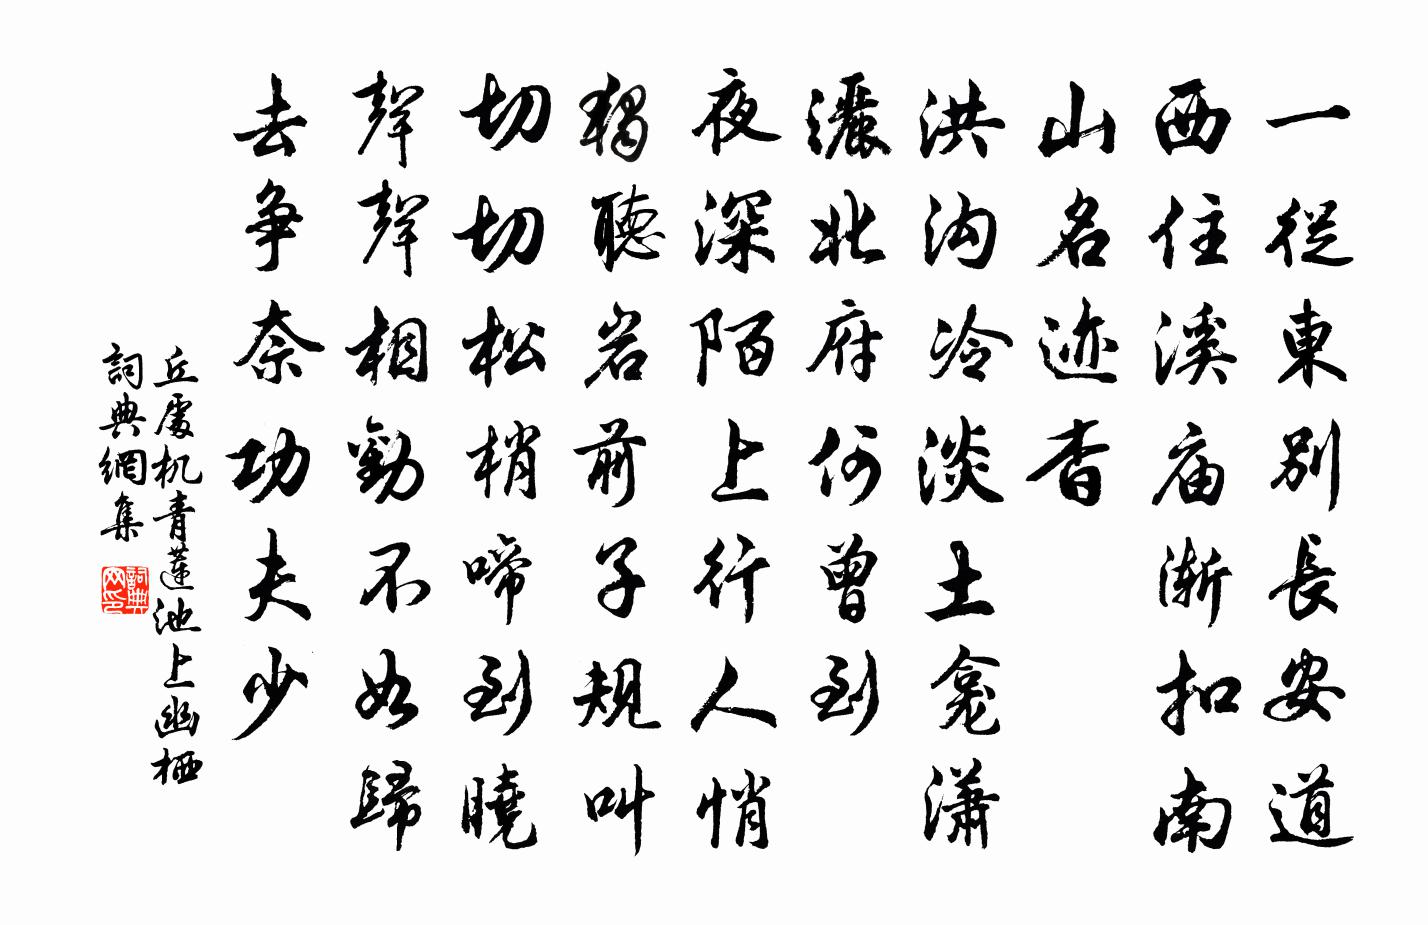 一從東別長安道
西住溪庙漸扣南
山名迹杳
洪沟冷淡土龛潇
灑北府何曾到
夜深陌上行人悄
獨聽岩前子規叫
切切松梢啼到曉
聲聲相勸不如歸
去争奈功夫少
丘處机青蓮池上幽栖
詞典網集
詞典网印